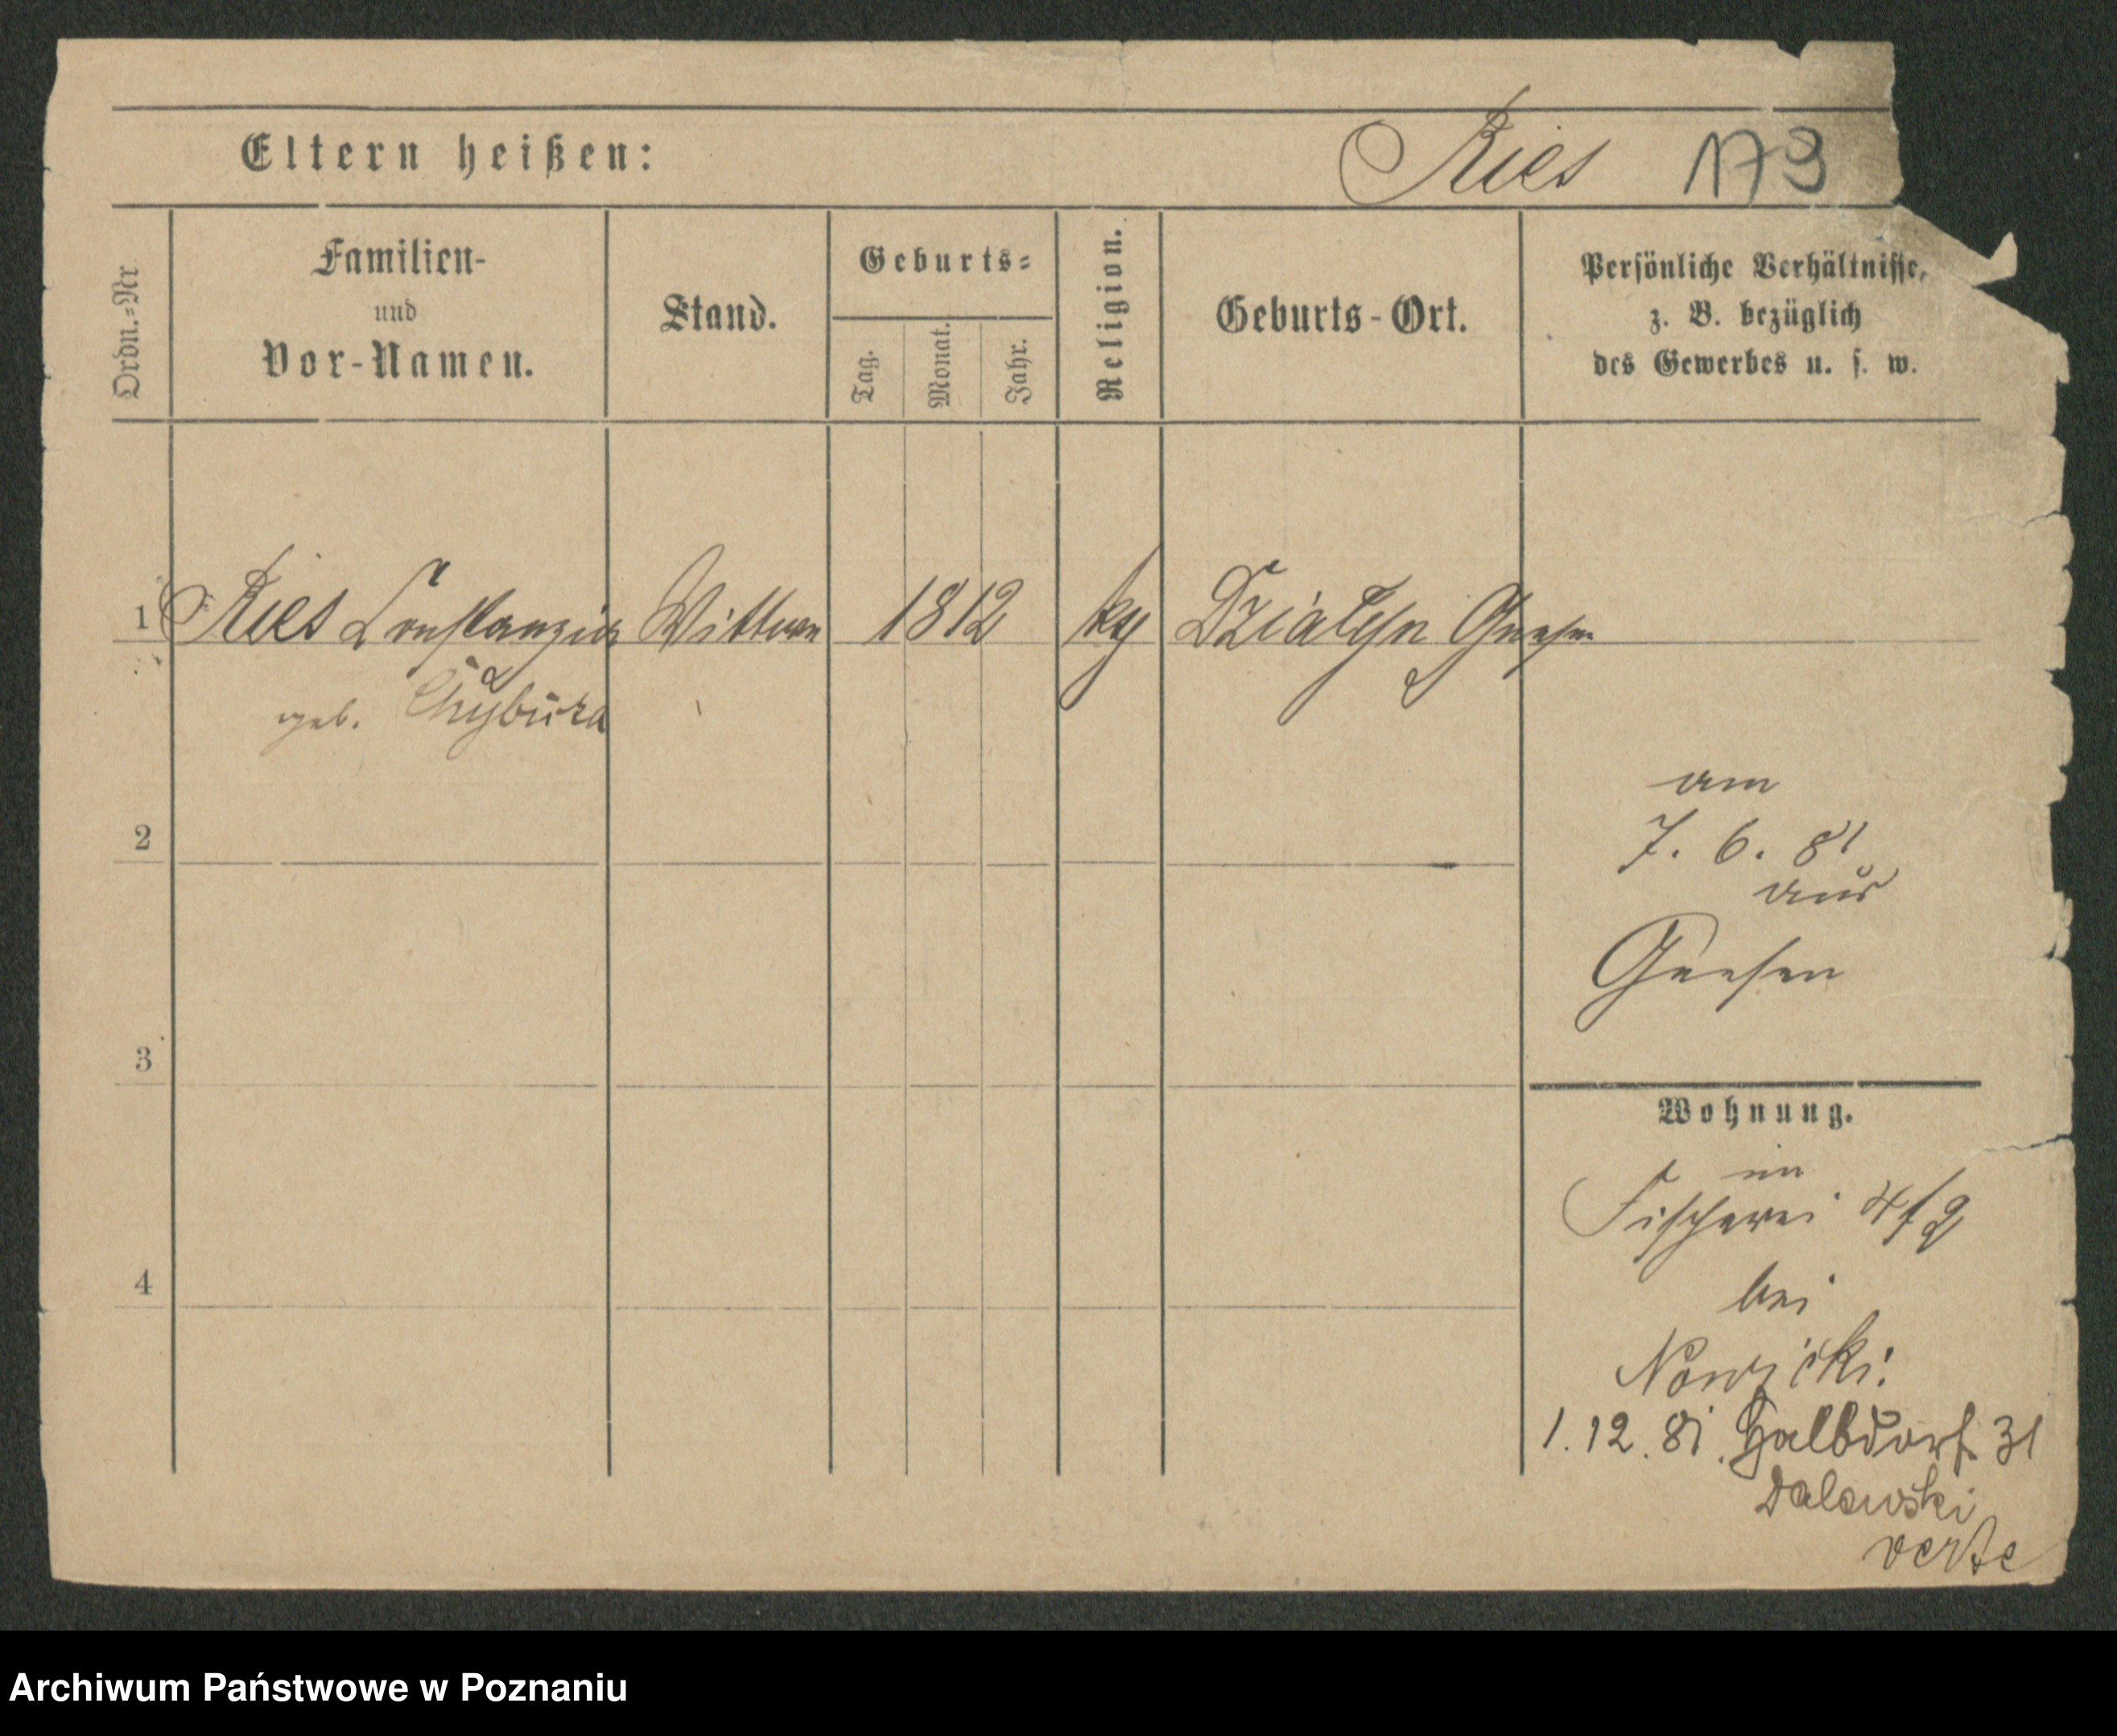 Eltern heißen: Ries 173
Ordn.-Nr.
Familien-
und
Vor-Namen.
Stand.
Geburts-
Tag.
Monat.
Jahr.
Religion.
Geburts-Ort.
Persönliche Verhältnisse,
z. B. bezüglich
des Gewerbes u. s. w.
1 Ries Constanzia Wittwe 1812 Działyn Gnesen
geb.
am
2
7. 6. 81
aus
Gnesen
3
Wohnung.
im
Fischerei 4/9
4
bei
Nowicki
1. 12. 81. Halbdorf 31
Dalewski
verte
Archiwum Państwowe w Poznaniu